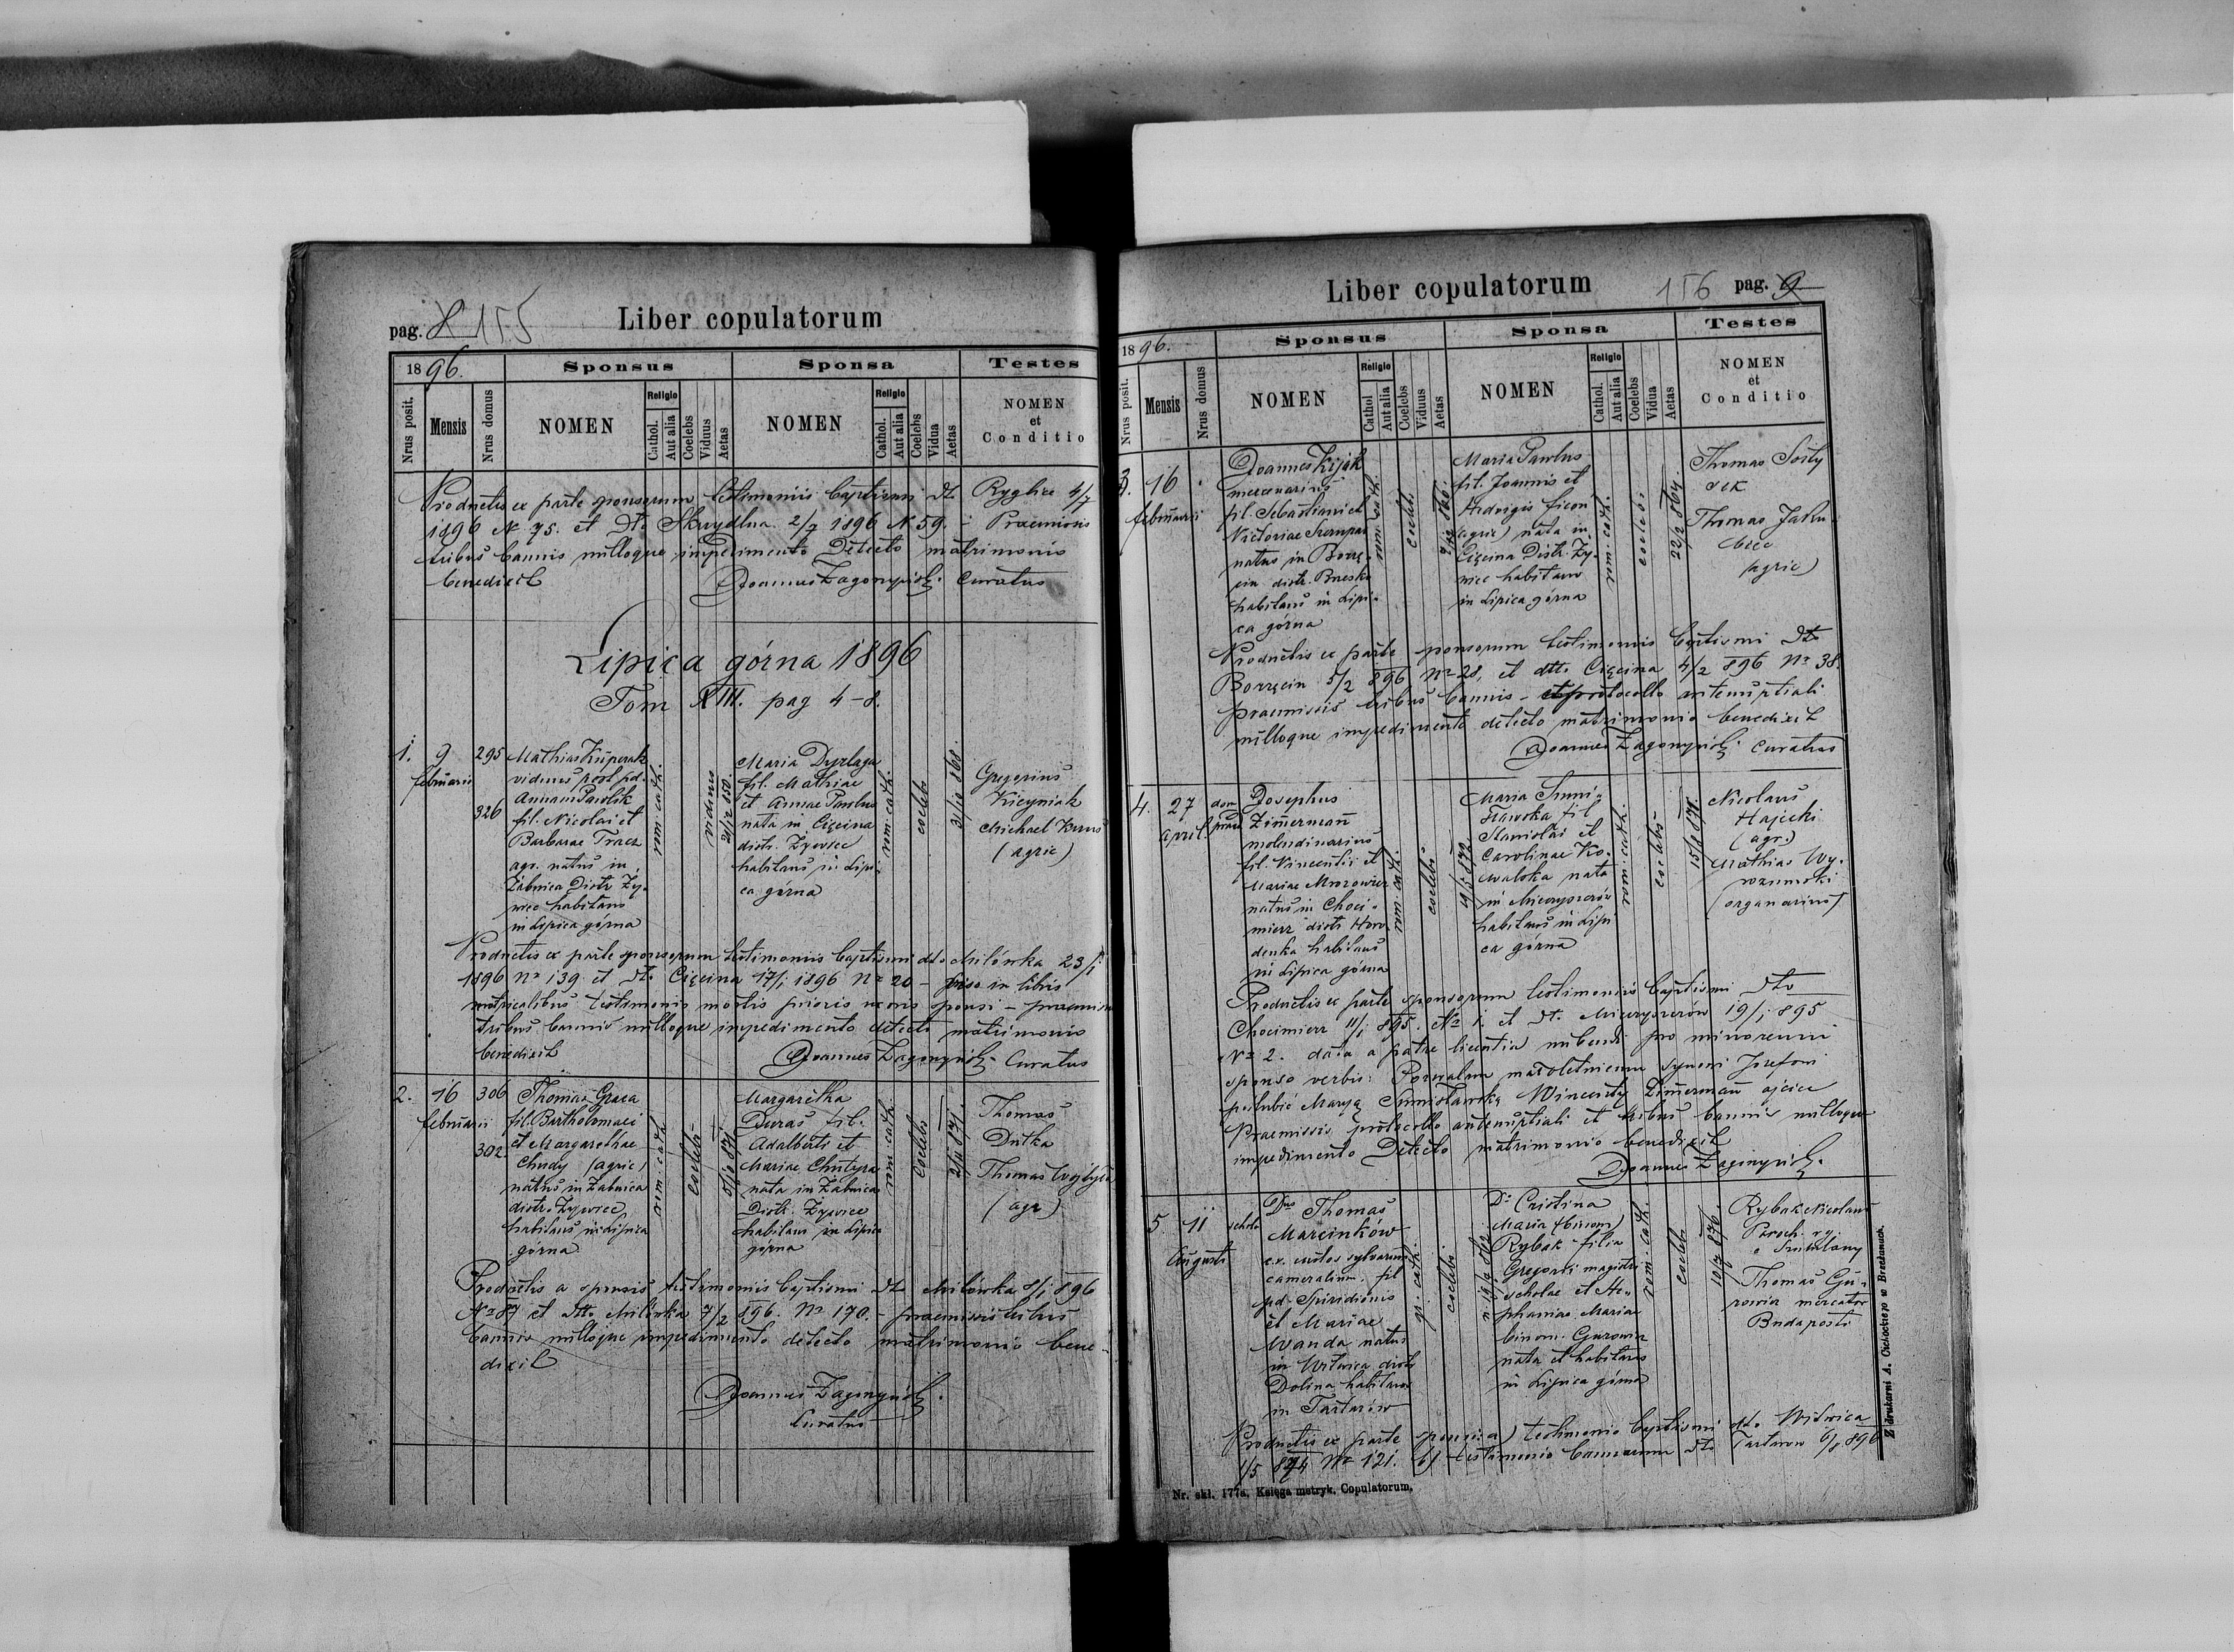 pag. 8 155
Liber copulatorum
1896.
Sponsus
Sponsa
Testes
Nrus posit.
Mensis
Nrus domus
NOMEN
Religio
Cathol.
Aut alia
Coelebs
Viduus
Aetas
NOMEN
Religio
Cathol.
Aut alia
Coelebs
Vidua
Aetas
NOMEN
et
Conditio
Productis ex parte sponsorum testimoniis baptismi dto Ryglice 4/7
1896 N. 75. et dto Skrzydlna 2/7 1896 N 59. - Praemissis
tribus bannis nulloque impedimento detecto matrimonio
benedixit Joannes Curatus
Lipica górna 1896
Tom XIII. pag 4-8.
1. 9 februarii
295
326
Mathias Kuperak
viduus post pd.
Annam Pawlik
fil. Nicolai et
Barbarae Tracz
agr. natus in
Żabnica Distr Ży-
wiec habitans
in Lipica górna
rom. cath.
viduus
Maria Dyrlaga
fil. Mathiae
et Annae Pawlus
nata in Cięcina
distr. Żywiec
habitans in Lipi-
ca górna
rom. cath.
coelebs
31/10 868.
Gregorius
Kicyniak
Michael Kurus
(agric)
Productis ex parte sponsorum testimoniis baptismi dto Milówka 23/1
1896 No 139 et dto Cięcina 17/1 1896 No 20 - viso in libris
matricalibus testimonio mortis prioris uxoris sponsi - praemissis
tribus bannis nulloque impedimento detecto matrimonio
benedixit Joannes Curatus
2. 16 februarii
306
302.
Thomas Graca
fil. Bartholomaei
et Margarethae
Chudy (agric)
natus in Żabnica
distr. Żywiec
habitans in Lipica
górna
rom. cath.
coelebs
5/10 871
Margaretha
Duraś fil.
Adalberti et
Mariae Chutyra
nata in Żabnica
Distr. Żywiec
habitans in Lipica
górna
rom. cath.
coelebs
2/11 871.
Thomas
Dutka
Thomas Wojtyła
(agr)
Productis a sponsis testimoniis baptismi dto Milówka 8/1 896
No 87 et dtto Milówka 7/2 896. No 170. - praemissis tribus
bannis nulloque impedimento detecto matrimonio bene-
dixit
Joannes
Curatus
Liber copulatorum
156 pag. 9
1896.
Sponsus
Sponsa
Testes
Nrus posit.
Mensis
Nrus domus
NOMEN
Religio
Cathol.
Aut alia
Coelebs
Viduus
Aetas
NOMEN
Religio
Cathol.
Aut alia
Coelebs
Vidua
Aetas
NOMEN
et
Conditio
3. 16 februarii
Joannes Kijak
mercenarius
fil. Sebastiani et
Victoriae
natus in Borzę-
cin distr. Brzesko
habitans in Lipi-
ca górna
rom. cath.
coelebs
Maria Pawlus
fil. Joannis et
Hedvigis Ficoń
(agric) nata in
Cięcina Distr. Ży-
wiec habitans
in Lipica górna
rom. cath.
coelebs
22/2 869.
Thomas
Thomas Jaku-
biec
(agric)
Productis ex parte sponsorum testimoniis baptismi dto
Borzęcin 5/2 896 No 28, et dtto Cięcina 4/2 896 No 38.
praemissis tribus bannis - et protocollo antenuptiali
nulloque impedimento detecto matrimonio benedixit
Joannes Curatus
4. 27 April.
Josephus
Zimmermann
molendinarius
fil. Vincentii et
Mariae Mrozowicz
natus in Choci-
mierz distr Horo-
denka habitans
in Lipica górna
rom. cath.
coelebs
Maria Sumi-
sławska fil
Stanislai et
Carolinae Ko-
walska nata
in Mieczyszczów
habitans in Lipi
ca górna
rom. cath.
coelebs
Nicolaus
Hajecki
(agr.)
Mathias Wy-
(organarius)
Productis ex parte sponsorum testimoniis baptismi dto
Chocimierz 11/1 895. No 1. et dt. Mieczyszczów 19/1 895
No 2. data a patre licentia nubendi pro minorenni
sponso verbis: Pozwalam małoletniemu synowi Józefowi
poślubić Maryę Sumisławską Wincenty Zimmermann ojciec
Praemissis protocollo antenuptiali et tribus bannis nulloque
impedimento Detecto matrimonio benedixit
Joannes
5. 11 Augusti
schola
Dnus Thomas
Marcinków
c.r. custos sylvarum
cameralium. fil
pd. Spiridionis
et Mariae
Wanda natus
in Witwica distr
Dolina habitans
in Tartarów
gr. cath.
coelebs
Da Cristina
Maria (binom)
Rybak filia
Gregorii magistri
scholae et Ste-
phaniae Mariae
binom. Gurowicz
nata et habitans
in Lipica górna
rom. cath.
coelebs
10/7 876.
Rybak Nicolaus
Thomas Gu-
rowicz mercator
Budapesti
Productis ex parte sponsi a) testimonio baptismi dto Witwica
1/5 No 121. b) testimonio bannorum dto Tartarow 6/8 896
Nr. skł. 177a. Księga metryk. Copulatorum.
Z drukarni A. Czchockiego w Brzeżanach.